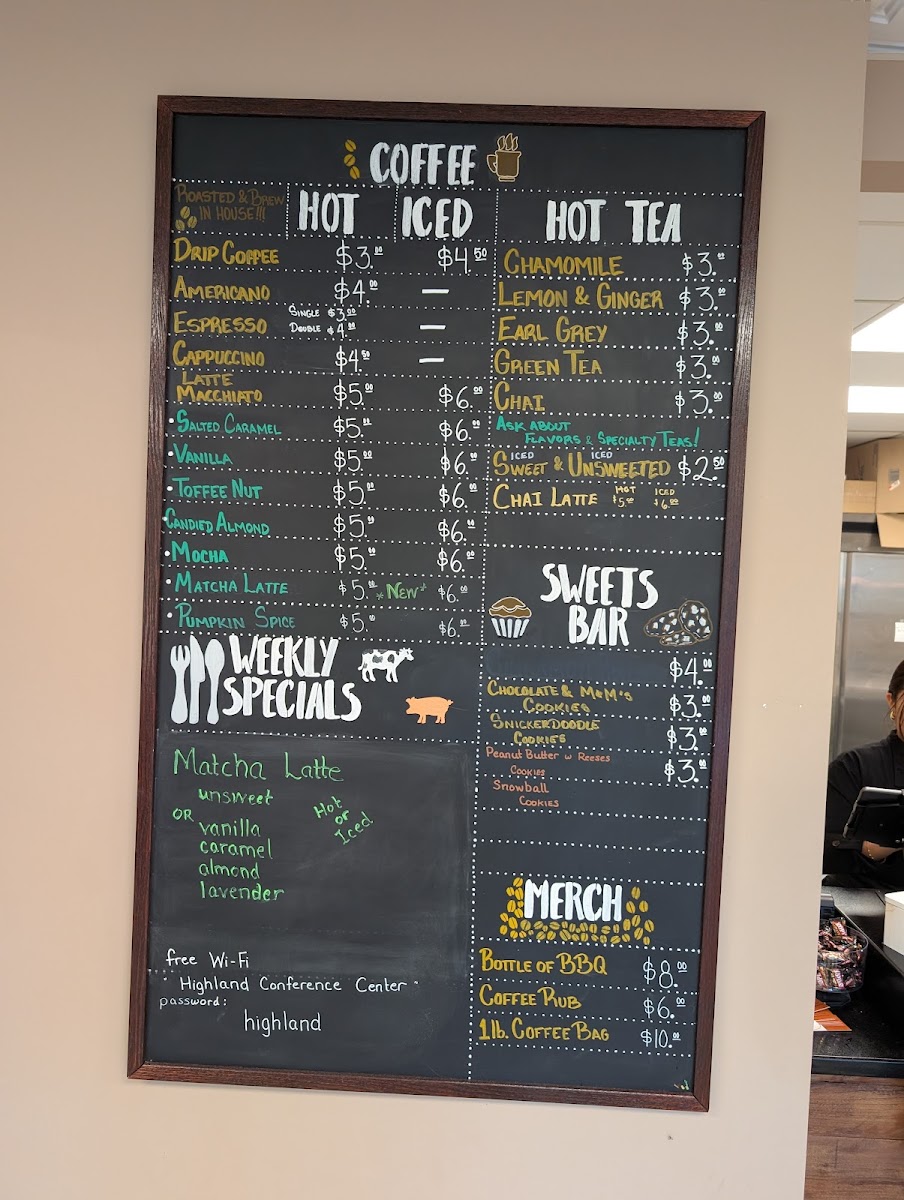 COFFEE
ROASTED & BREW
IN HOUSE!!!
HOT ICED
DRIP COFFEE $3.00 $4.50
AMERICANO $4.00 —
ESPRESSO SINGLE $3.00
DOUBLE $4.00 —
CAPPUCCINO $4.50 —
LATTE
MACCHIATO $5.00 $6.00
• SALTED CARAMEL $5.00 $6.00
• VANILLA $5.00 $6.00
• TOFFEE NUT $5.00 $6.00
• CANDIED ALMOND $5.00 $6.00
• MOCHA $5.00 $6.00
• MATCHA LATTE $5.00 *NEW* $6.00
• PUMPKIN SPICE $5.00 $6.00
WEEKLY
SPECIALS
Matcha Latte
unsweet
OR
vanilla
caramel
almond
lavender
Hot
or
Iced
free Wi-Fi
"Highland Conference Center"
password:
highland
HOT TEA
CHAMOMILE $3.00
LEMON & GINGER $3.00
EARL GREY $3.00
GREEN TEA $3.00
CHAI $3.00
ASK ABOUT
FLAVORS & SPECIALTY TEAS!
ICED ICED
SWEET & UNSWEETED $2.50
HOT ICED
CHAI LATTE $5.00 $6.00
SWEETS
BAR
$4.00
CHOCOLATE & M&M'S
COOKIES $3.00
SNICKERDOODLE
COOKIES $3.00
Peanut Butter w Reeses
COOKIES $3.00
Snowball
COOKIES
MERCH
BOTTLE OF BBQ $8.00
COFFEE RUB $6.00
1 lb. COFFEE BAG $10.00